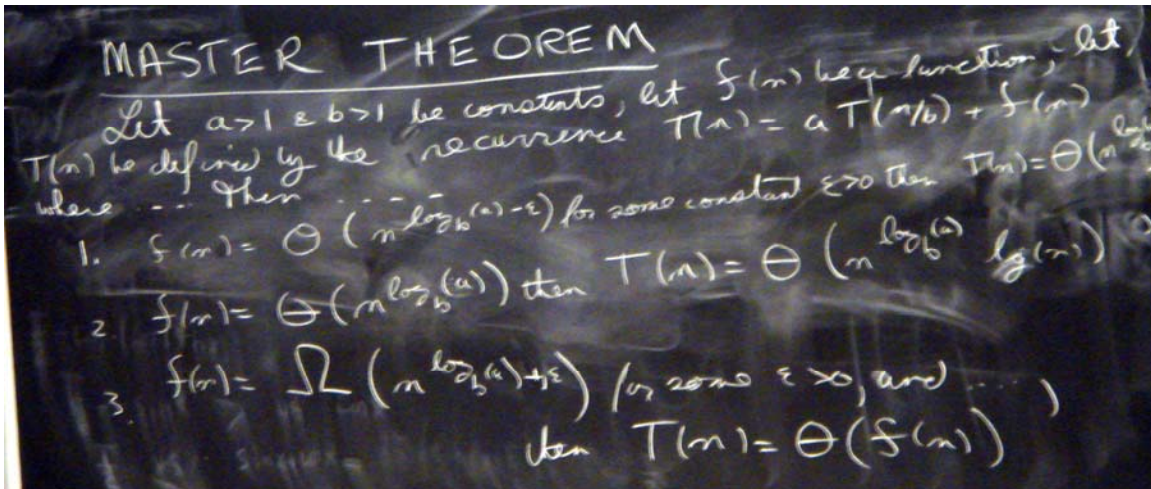 MASTER THEOREM
Let a>1 & b>1 be constants, let f(n) be a function, let
T(n) be defined by the recurrence T(n) = a T(n/b) + f(n)
where ... Then ....
1. f(n) = Θ(n^log_b(a)-ε) for some constant ε>0 then T(n) = Θ(n^log_b
2. f(n) = Θ(n^log_b(a)) then T(n) = Θ(n^log_b(a) lg(n))
3. f(n) = Ω(n^log_b(a)+ε) for some ε>0, and ....,
then T(n) = Θ(f(n))